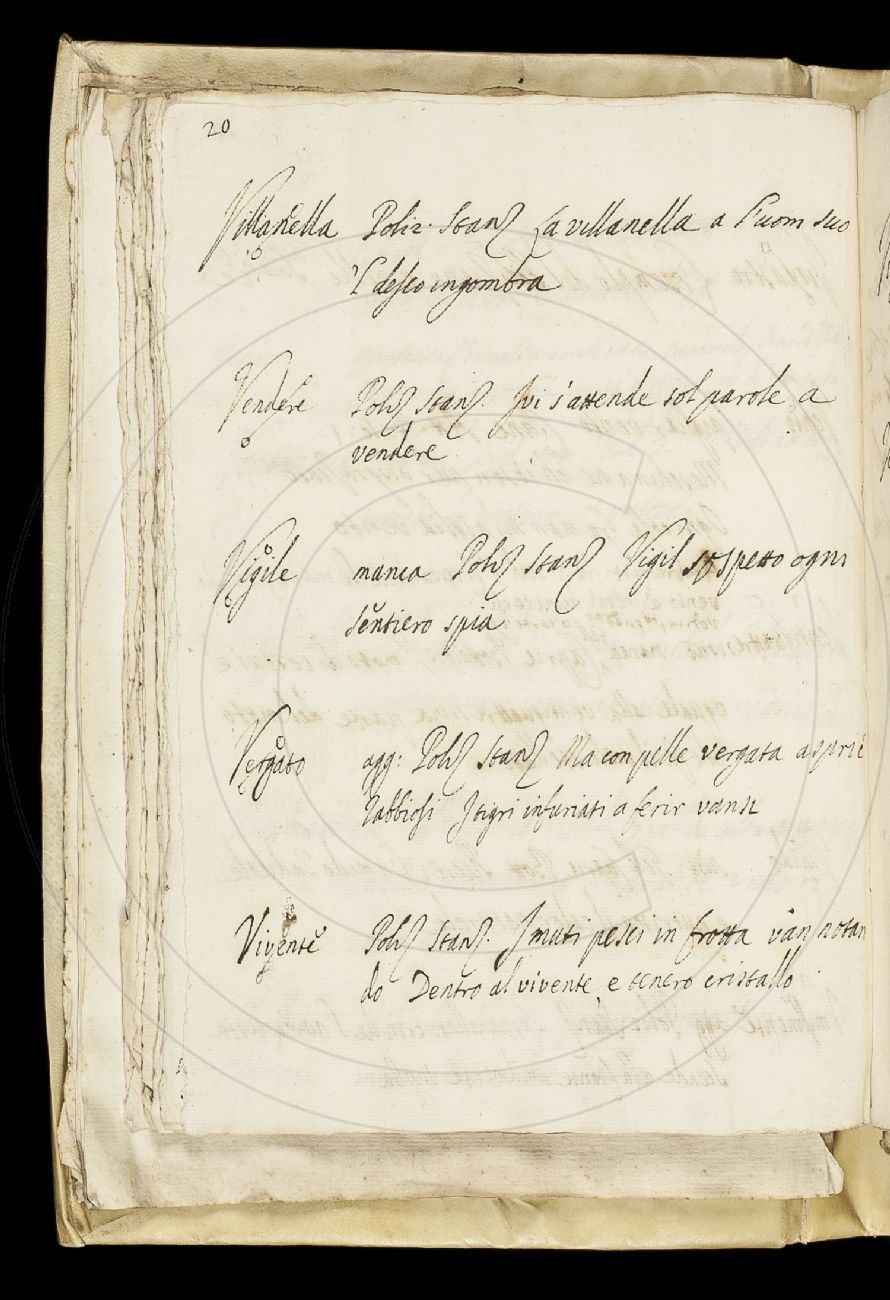 20
Villanella Poliz. Stanz La villanella a l'uom suo
'l desco ingombra
Vendere Poliz Stanz. Ivi s'attende sol parole a
vendere
Vigile manca Poliz Stanz Vigil sospetto ogni
sentiero spia
Vergato agg: Poliz Stanz Ma con pelle vergata aspri e
rabbiosi I tigri infuriati a ferir vansi
Vivente Poliz Stanz. I muti pesci in frotta van notan
do Dentro al vivente, e tenero cristallo